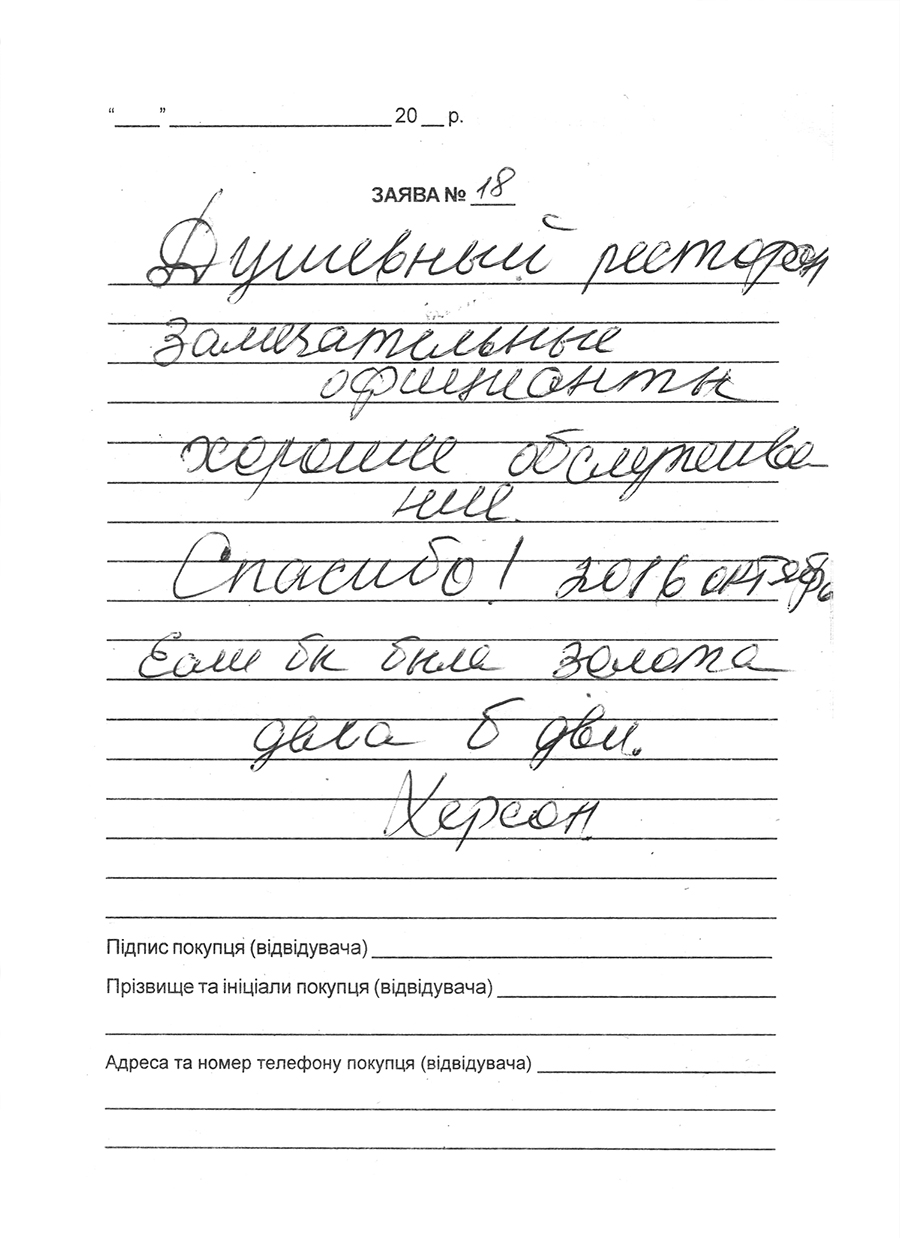 “____” ____________________ 20 __ р.
ЗАЯВА № 18
Душевный ресторан
Замечательные
официанты
хорошие обслужива
ние.
Спасибо! 2016 октябрь
Если бы была золота
дала б две.
Херсон
Підпис покупця (відвідувача)
Прізвище та ініціали покупця (відвідувача)
Адреса та номер телефону покупця (відвідувача)